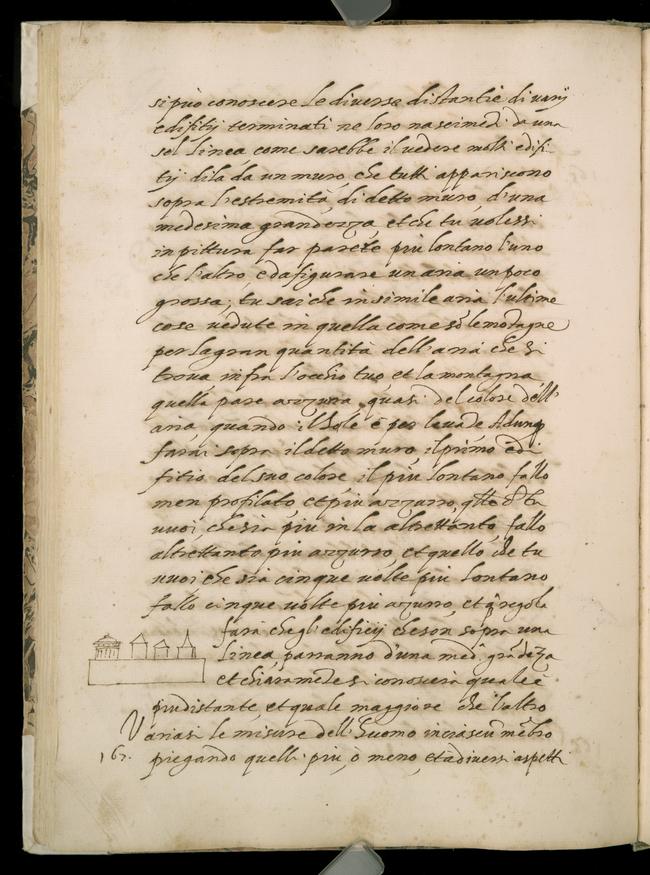 si può conoscere le diverse distantie di varij
edifitij terminati ne loro nascimẽti da una
sol linea come sarebbe il vedere molti edifi-
tij dila da un muro, che tutti appariscono
sopra l'estremità, di detto muro d'una
medesima grandezza, et che tu volessi
in pittura far parere piu lontano l'uno
che l'altro, e da figurare un aria un poco
grossa, tu sai che in simile aria l'ultime
cose vedute in quella come sõ le mõtagne
per la gran quantità dell'aria che si
trova infra l'occhio tuo et la montagna
quella pare azzurra, quasi del colore dell'
aria, quando il Sole è per levãte Adunq
farai sopra il detto muro, il primo edi
fitio del suo colore il piu lontano fallo
men profilato, et piu azzurro, q̃llo ch tu
vuoi, che sia piu in la altrettanto, fallo
altrettanto piu azzurro, et quello che tu
vuoi che sia cinque volte piu lontano
fallo cinque volte piu azurro, et q̃ regola
farà che gl'edificij che son sopra una
linea parranno d'una med. grãdezza
et chiaramẽte si conoscerà quale è
piu distante et quale maggiore che l'altro
Variasi le misure dell'huomo in ciascũ mẽbro
167. piegando quelli piu, ò meno, et a diversi aspetti